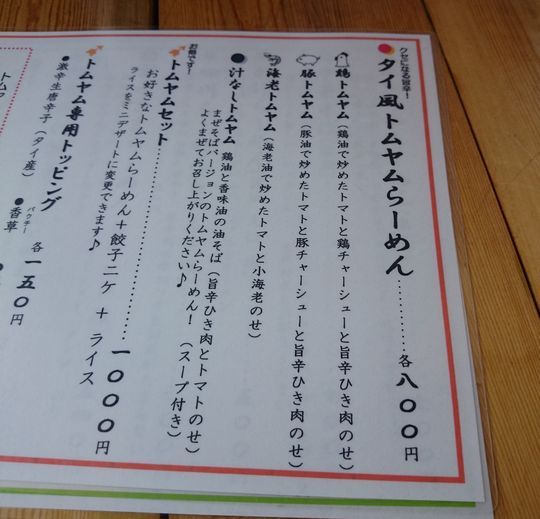 クセになる旨辛!
タイ風トムヤムらーめん………… 各八〇〇円
鶏トムヤム（鶏油で炒めたトマトと鶏チャーシューと旨辛ひき肉のせ）
豚トムヤム（豚油で炒めたトマトと豚チャーシューと旨辛ひき肉のせ）
海老トムヤム（海老油で炒めたトマトと小海老のせ）
汁なしトムヤム 鶏油と香味油の油そば（旨辛ひき肉とトマトのせ）
まぜそばバージョンのトムヤムらーめん!（スープ付き）
よくまぜてお召し上がりください♪
お得です!
トムヤムセット………… 一〇〇〇円
お好きなトムヤムらーめん＋餃子二ケ ＋ ライス
ライスをミニデザートに変更できます♪
トムヤム専用トッピング 各一五〇円
●激辛生唐辛子（タイ産）
●香草
パクチー